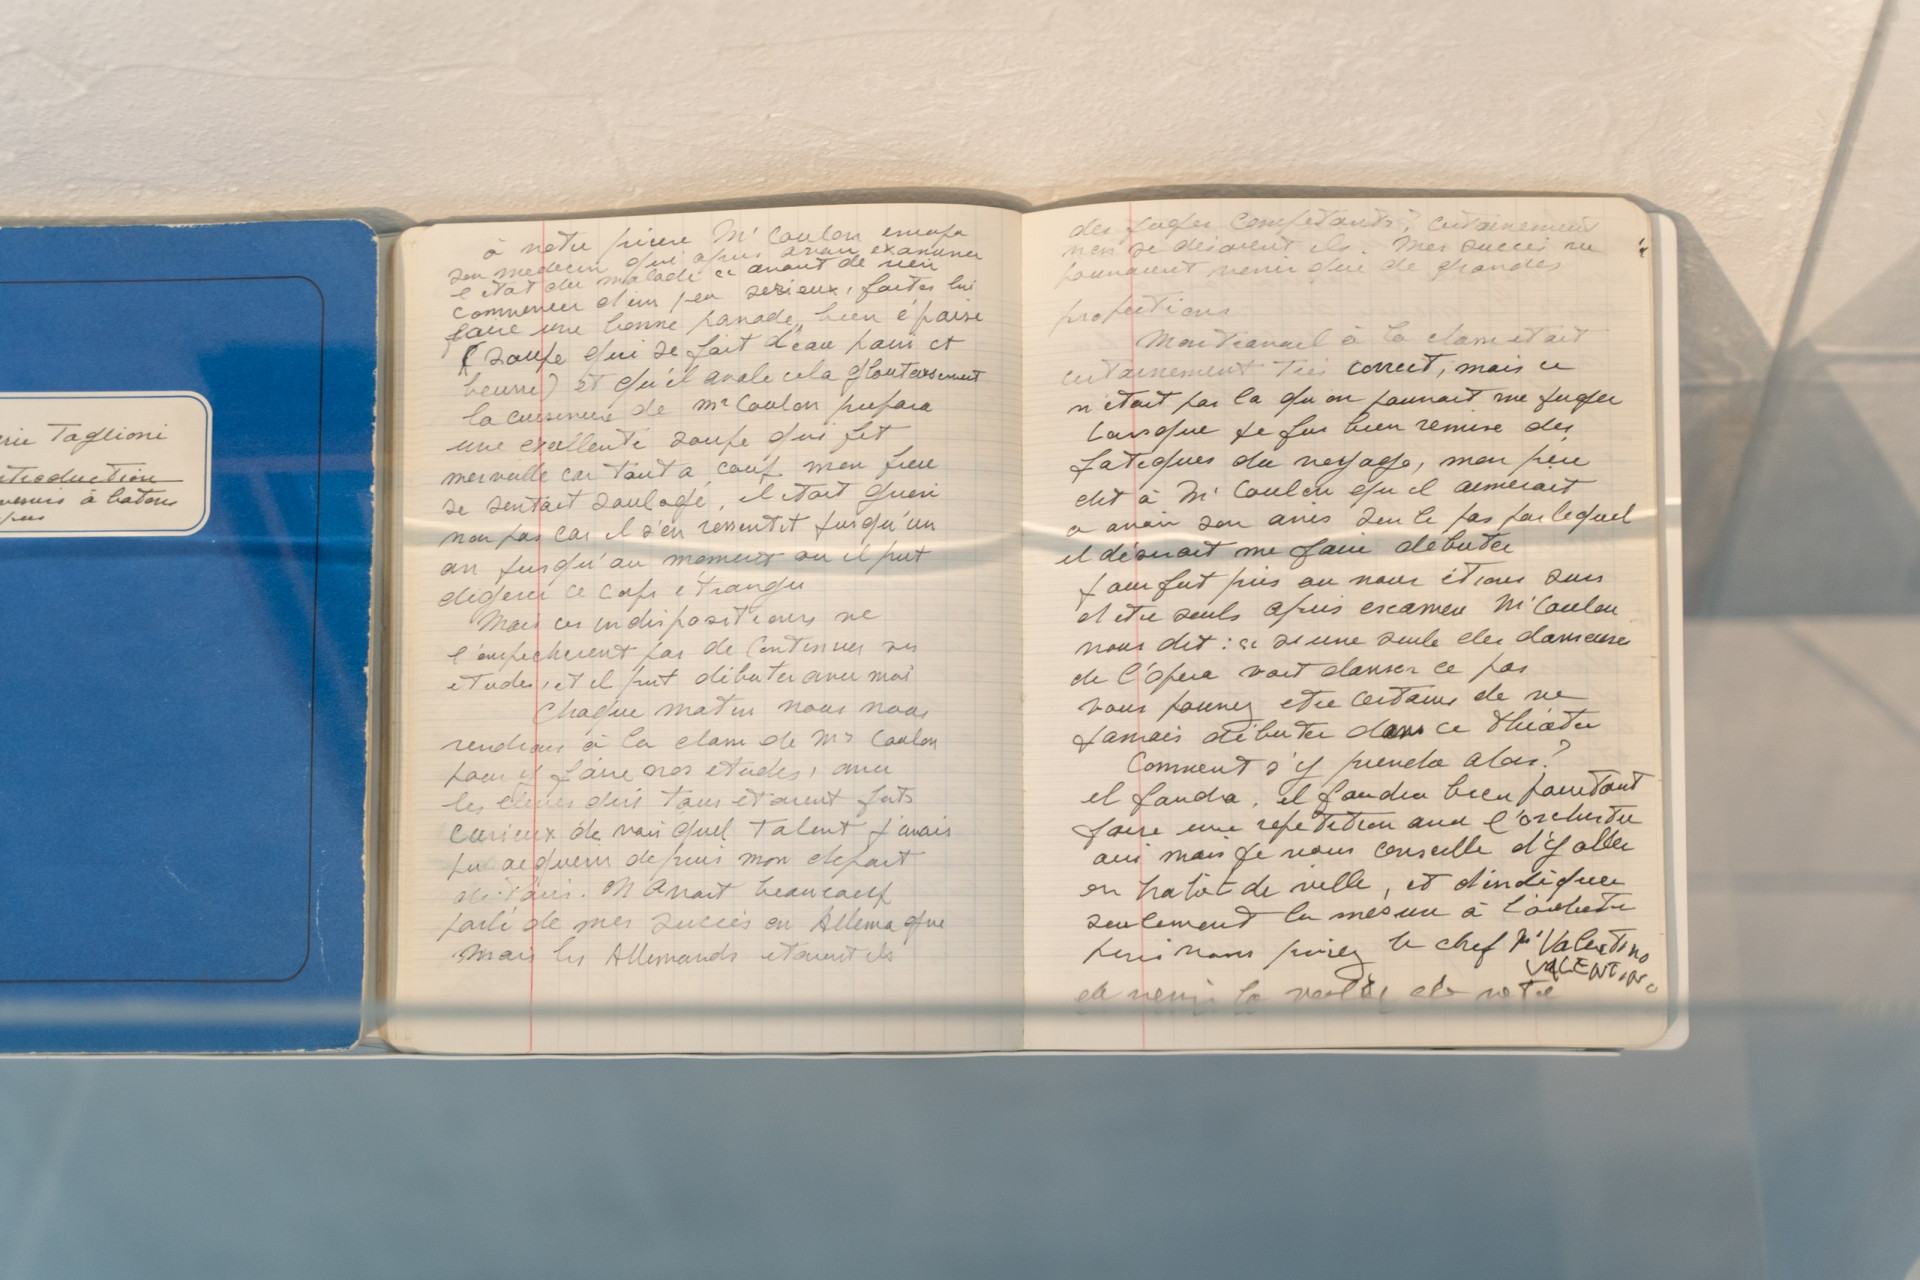 erie Taglioni
ntroduction
venirs à batons
pus
à notre prière Mr Coulon envoya
son medecin qui apres avoir examiner
l'etat du malade ce avant de rien
commencer d'un peu serieux, faites lui
faire une bonne panade, bien épaise
(soupe qui se fait d'eau pain et
beurre) et qu'il avale cela gloutonsement
la cuisiniere de Mr Coulon prepara
une exellente soupe qui fit
merveille car tout a coup mon frere
se sentait soulagé, il etait gueri
non pas car il s'en ressentit jusqu'un
an jusqu'au moment ou il put
digerer ce corps etranger
Mais ces indispositions ne
l'empecherent pas de continuer ses
etudes, et il put débuter avec moi
Chaque matin nous nous
rendions à la classe de Mr Coulon
pour y faire nos etudes, avec
les élèves qui tous etaient forts
curieux de voir quel talent j'avais
pu acquerir depuis mon depart
de Paris. On avait beaucoup
parlé de mes succès en Allemagne
Mais les Allemands etaient ils
des juges competants? certainement
non se disaient ils. Mes succès ne
pouvaient venir que de grandes
protections
Mon travail à la classe etait
certainement très correct, mais ce
n'etait pas la qu'on pouvait me juger
Lorsque je fus bien remise des
fatigues du voyage, mon père
dit à Mr Coulon qu'il aimerait
a avoir son avis sur le pas par lequel
il désirait me faire débuter
jour fut pris ou nous étions surs
d'etre seuls apres examen Mr Coulon
nous dit: si une seule des danseuse
de l'Opera voit danser ce pas
vous pouvez etre certains de ne
jamais débuter dans ce théatre
Comment s'y prendre alors?
il faudra, il faudra bien pourtant
faire une repetition avec l'orchestre
oui mais je vous conseille d'y aller
en habit de ville, et d'indiquer
seulement la mesure à l'orchestre
puis vous priez le chef Mr Valentino
VALENTINO
de venir la veille de votre